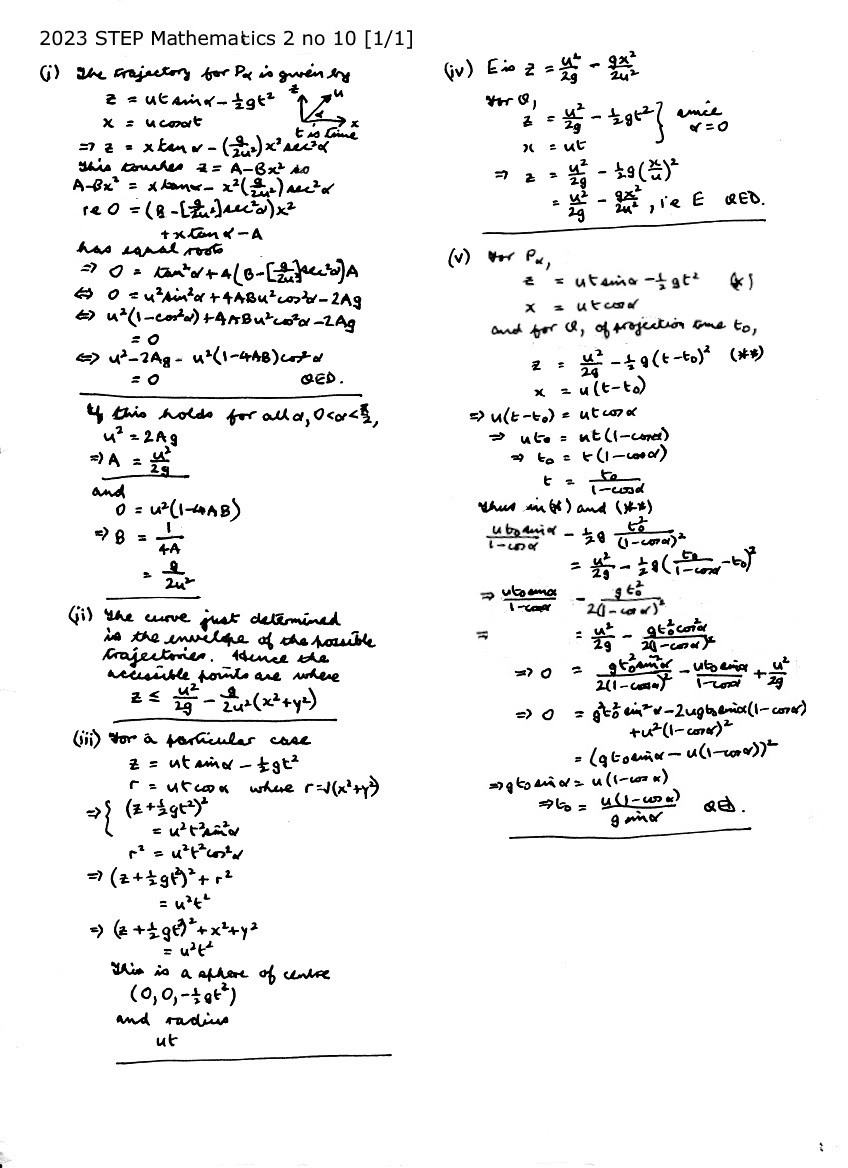 2023 STEP Mathematics 2 no 10 [1/1]
(i) The trajectory for Pα is given by
z = ut sin α - ½gt²
x = u cos αt
z
u
α
x
t is time
⇒ z = x tan α - (g/2u²) x² sec²α
This touches z = A - Bx² so
A - Bx² = x tan α - x²(g/2u²) sec²α
ie 0 = (B - [g/2u²] sec²α) x²
+ x tan α - A
has equal roots
⇒ 0 = tan²α + 4(B - [g/2u²] sec²α)A
⇔ 0 = u² sin²α + 4ABu² cos²α - 2Ag
⇔ u²(1 - cos²α) + 4ABu² cos²α - 2Ag
= 0
⇔ u² - 2Ag - u²(1 - 4AB) cos²α
= 0 QED.
If this holds for all α, 0 < α < π/2,
u² = 2Ag
⇒ A = u²/2g
and
0 = u²(1 - 4AB)
⇒ B = 1/4A
= g/2u²
(ii) The curve just determined
is the envelope of the possible
trajectories. Hence the
accessible points are where
z ≤ u²/2g - g/2u² (x² + y²)
(iii) For a particular case
z = ut sin α - ½gt²
r = ut cos α where r = √(x² + y²)
⇒ { (z + ½gt²)²
= u²t² sin²α
r² = u²t² cos²α
⇒ (z + ½gt²)² + r²
= u²t²
⇒ (z + ½gt²)² + x² + y²
= u²t²
This is a sphere of centre
(0, 0, -½gt²)
and radius
ut
(iv) E is z = u²/2g - gx²/2u²
For Q,
z = u²/2g - ½gt² } since
x = ut α = 0
⇒ z = u²/2g - ½g(x/u)²
= u²/2g - gx²/2u², i.e E QED.
(v) For Pα,
z = ut sin α - ½gt² (*)
x = ut cos α
and for Q, of projection time t₀,
z = u²/2g - ½g(t - t₀)² (**)
x = u(t - t₀)
⇒ u(t - t₀) = ut cos α
⇒ ut₀ = ut(1 - cos α)
⇒ t₀ = t(1 - cos α)
t = t₀/(1 - cos α)
Thus in (*) and (**)
ut₀ sin α/(1 - cos α) - ½g t₀²/(1 - cos α)²
= u²/2g - ½g(t₀/(1 - cos α) - t₀)²
⇒ ut₀ sin α/(1 - cos α) - gt₀²/2(1 - cos α)²
= = u²/2g - gt₀² cos²α/2(1 - cos α)²
⇒ 0 = gt₀² sin²α/2(1 - cos α)² - ut₀ sin α/(1 - cos α) + u²/2g
⇒ 0 = g²t₀² sin²α - 2ugt₀ sin α(1 - cos α)
+ u²(1 - cos α)²
= (gt₀ sin α - u(1 - cos α))²
⇒ gt₀ sin α = u(1 - cos α)
⇒ t₀ = u(1 - cos α)/g sin α QED.